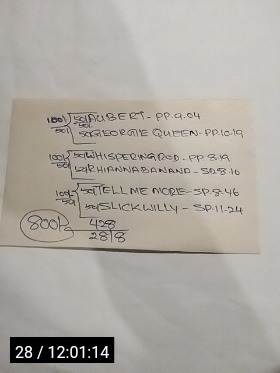 100/ 50/ AUBERT - PP.9.04
50/ 50/ GEORGIE QUEEN - PP.10.19
100/ 50/ WHISPERING ROD - PP 8.19
50/ 50/ RHIANNA BANANA - SP.8.10
100/ 50/ TELL ME MORE - SP.8.46
50/ 50/ SLICK WILLY - SP.11.24
800/ 428
2818
28 / 12:01:14